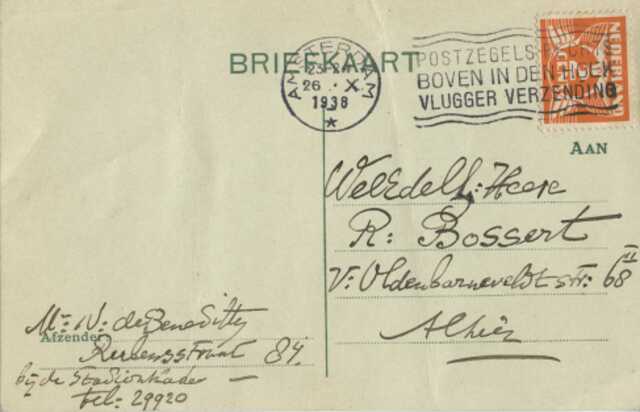 BRIEFKAART
AMSTERDAM
23-24
26 X
1938
POSTZEGELS
BOVEN IN DEN HOEK
VLUGGER VERZENDING
NEDERLAND
AAN
WelEdel H: Heere
R: Bossert
V: Oldenbarneveldtstr: 68 II
Alhier
Mr: W: de Beneditty
Afzender
Rubensstraat 84.
bij de Stadionkade —
Tel: 29920